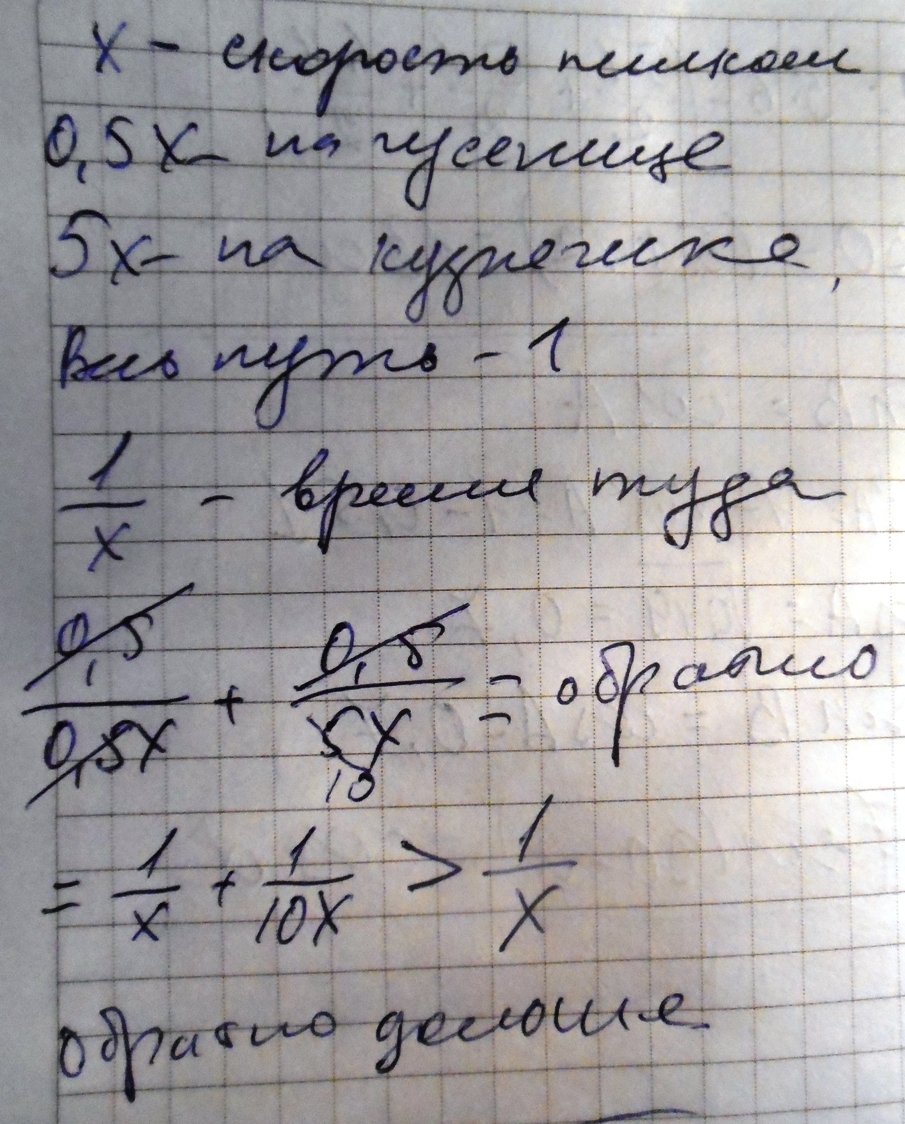 x - скорость пешком
0,5x - на гусенице
5x - на кузнечике,
Весь путь - 1
1/x - время туда
0,5/0,5x + 0,5/5x = обратно
10
= 1/x + 1/10x > 1/x
обратно дольше